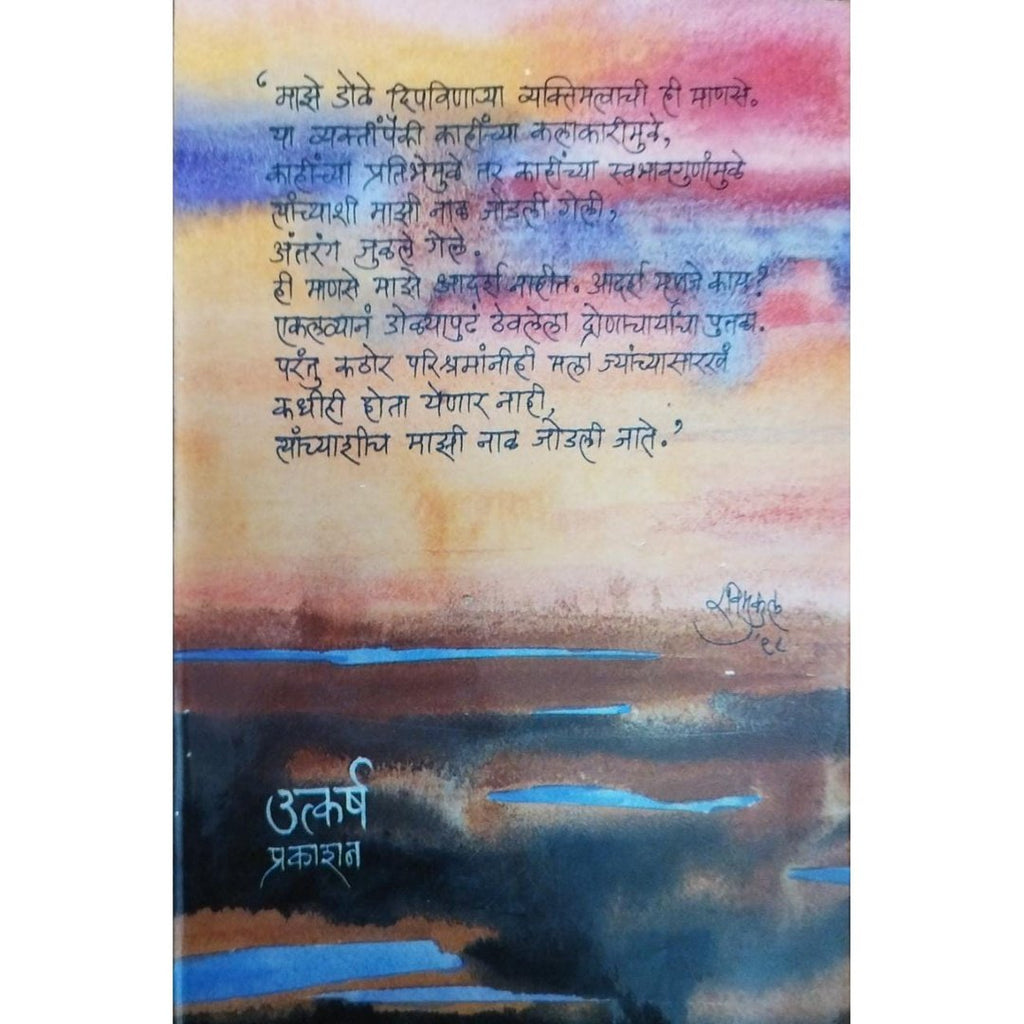 ‘माझे डोळे दिपविणाऱ्या व्यक्तिमत्वाची ही माणसे.
या व्यक्तींपैकी काहींच्या कलाकारीमुळे,
काहींच्या प्रतिभेमुळे तर काहींच्या स्वभावगुणांमुळे
त्यांच्याशी माझी नाळ जोडली गेली,
अंतरंग जुळले गेले.
ही माणसे माझे आदर्श नाहीत. आदर्श म्हणजे काय?
एकलव्यानं डोळ्यापुढं ठेवलेला द्रोणाचार्यांचा पुतळा.
परंतु कठोर परिश्रमांनीही मला ज्यांच्यासारखं
कधीही होता येणार नाही,
त्यांच्याशीच माझी नाळ जोडली जाते.’
रविमुकुल
'९८
उत्कर्ष
प्रकाशन